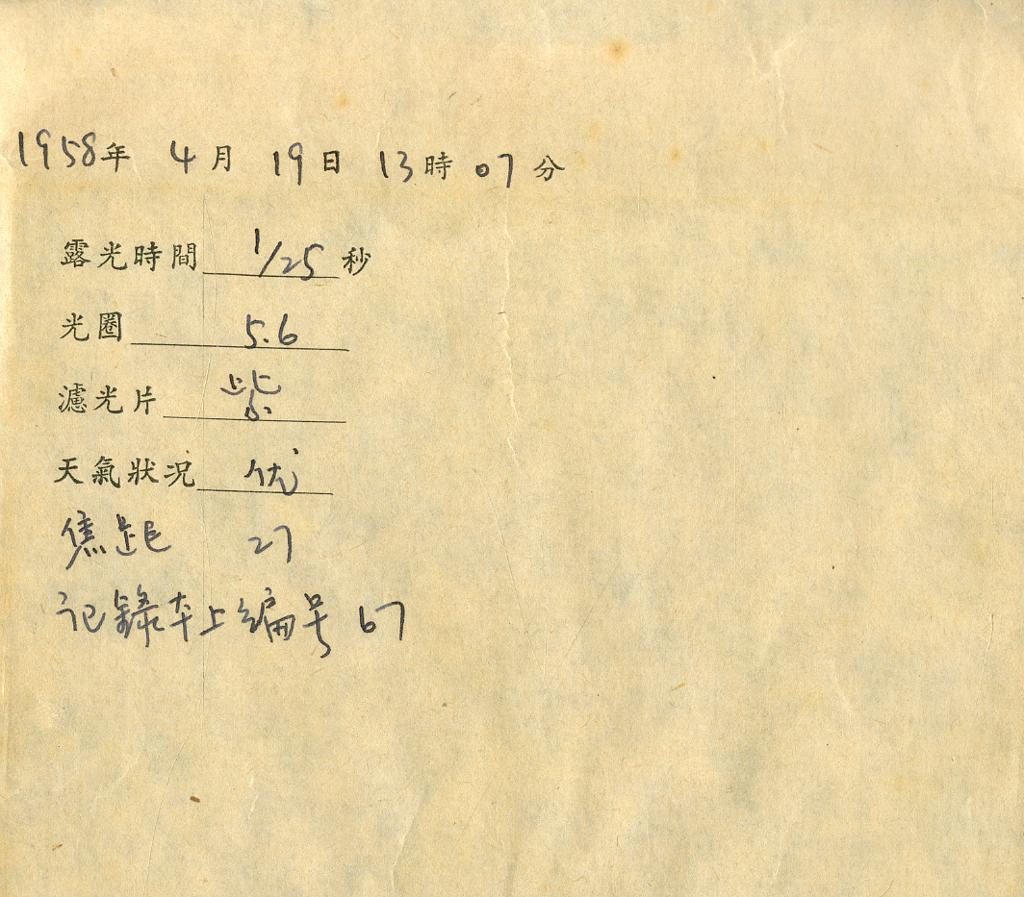 1958年 4月 19日 13時 07分
露光時間 1/25 秒
光圈 5.6
濾光片 紫
天氣狀况 优
焦距 27
记錄本上编号 67